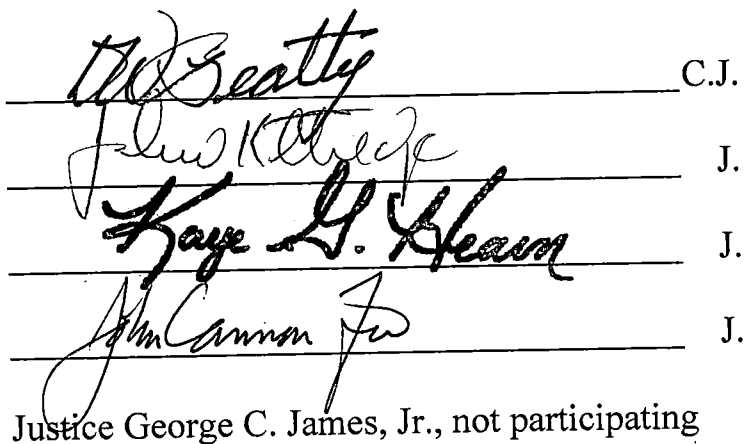 DW Beatty C.J.
John Kittredge J.
Kaye G. Hearn J.
John Cannon Few J.
Justice George C. James, Jr., not participating